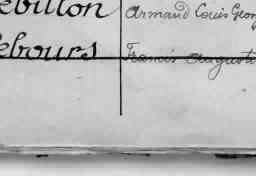 ebillon Armand Louis Georg
lebours Francis Auguste